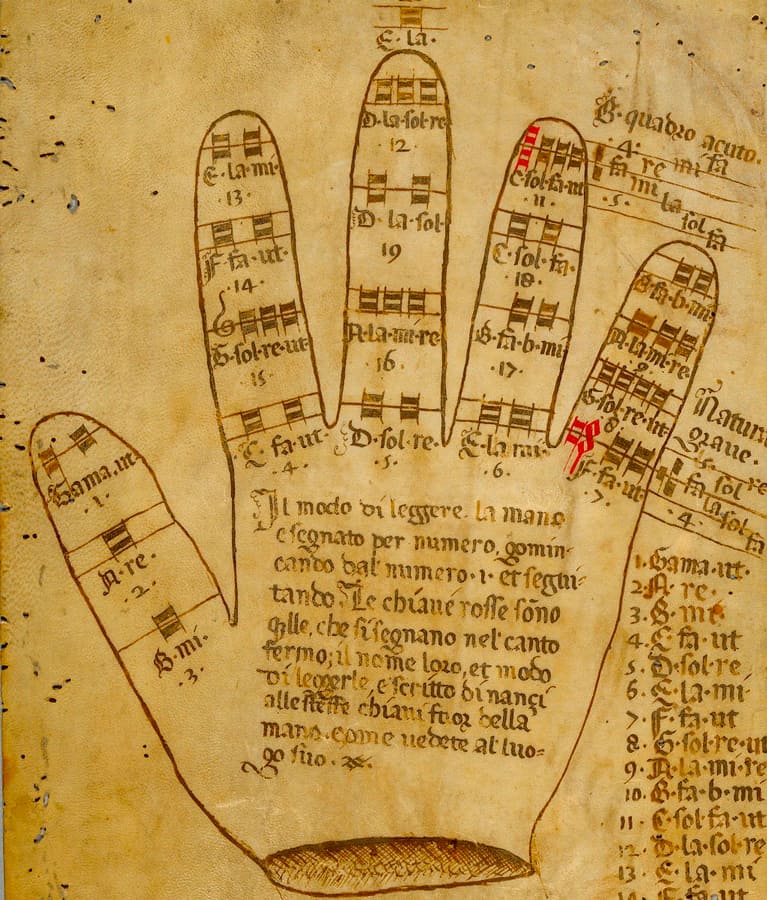 E·la·
D·la·sol·re
12·
E·la·mi·
·13·
C·sol·fa·ut
·11·
B·quadro acuto·
·4·
re mi fa
fa mi la sol fa
·5·
D·la·sol·
19
F·fa·ut·
·14·
C·sol·fa·
·18·
B·fa·b·mi·
G
G·sol·re·ut
15·
A·la·mi·re
·16·
G·fa·b·mi
·17·
A·la·mi·re·
G·sol·re·ut·
·8·
C·fa·ut·
·4·
D·sol·re·
·5·
E·la·mi·
·6·
F·fa·ut·
·7·
Natura
graue·
fa sol re
la sol fa
·4·
Gama·ut·
·1·
A·re·
·2·
B·mi·
·3·
Il modo di leggere la mano
e segnato per numero, gomin-
cando dal numero·1· et segui-
tando. Le chiaue rosse sono
qlle, che si segnano nel canto
fermo; il nome loro, et modo
di leggerle, e scritto dinançi
alle steße chiaui fuor della
mano·come uedete al luo=
go suo·
1·Gama·ut·
2·A·re·
3·B·mi·
4·C·fa·ut
5·D·sol·re
6·E·la·mi·
7·F·fa·ut
8·G·sol·re·ut
9·A·la·mi·re
10·B·fa·b·mi
11·C·sol·fa·ut
12·D·la·sol·re
13·E·la·mi
14·F·fa·ut